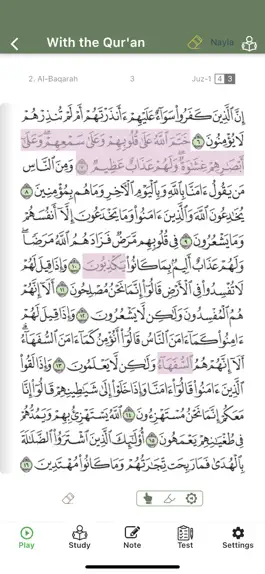 With the Qur'an
Nayla
2. Al-Baqarah 3 Juz-1 4 3
إِنَّ الَّذِينَ كَفَرُوا سَوَاءٌ عَلَيْهِمْ ءَأَنذَرْتَهُمْ أَمْ لَمْ تُنذِرْهُمْ
لَا يُؤْمِنُونَ ٦ خَتَمَ اللَّهُ عَلَىٰ قُلُوبِهِمْ وَعَلَىٰ سَمْعِهِمْ ۖ وَعَلَىٰ
أَبْصَارِهِمْ غِشَاوَةٌ ۖ وَلَهُمْ عَذَابٌ عَظِيمٌ ٧ وَمِنَ النَّاسِ
مَن يَقُولُ ءَامَنَّا بِاللَّهِ وَبِالْيَوْمِ الْآخِرِ وَمَا هُم بِمُؤْمِنِينَ ٨
يُخَادِعُونَ اللَّهَ وَالَّذِينَ ءَامَنُوا وَمَا يَخْدَعُونَ إِلَّا أَنفُسَهُمْ
وَمَا يَشْعُرُونَ ٩ فِي قُلُوبِهِم مَّرَضٌ فَزَادَهُمُ اللَّهُ مَرَضًا ۖ
وَلَهُمْ عَذَابٌ أَلِيمٌ بِمَا كَانُوا يَكْذِبُونَ ١٠ وَإِذَا قِيلَ لَهُمْ
لَا تُفْسِدُوا فِي الْأَرْضِ قَالُوا إِنَّمَا نَحْنُ مُصْلِحُونَ ١١ أَلَا إِنَّهُمْ
هُمُ الْمُفْسِدُونَ وَلَٰكِن لَّا يَشْعُرُونَ ١٢ وَإِذَا قِيلَ لَهُمْ
ءَامِنُوا كَمَا ءَامَنَ النَّاسُ قَالُوا أَنُؤْمِنُ كَمَا ءَامَنَ السُّفَهَاءُ ۗ
أَلَا إِنَّهُمْ هُمُ السُّفَهَاءُ وَلَٰكِن لَّا يَعْلَمُونَ ١٣ وَإِذَا لَقُوا
الَّذِينَ ءَامَنُوا قَالُوا ءَامَنَّا وَإِذَا خَلَوْا إِلَىٰ شَيَاطِينِهِمْ قَالُوا إِنَّا
مَعَكُمْ إِنَّمَا نَحْنُ مُسْتَهْزِءُونَ ١٤ اللَّهُ يَسْتَهْزِئُ بِهِمْ وَيَمُدُّهُمْ
فِي طُغْيَانِهِمْ يَعْمَهُونَ ١٥ أُولَٰئِكَ الَّذِينَ اشْتَرَوُا الضَّلَالَةَ
بِالْهُدَىٰ فَمَا رَبِحَت تِّجَارَتُهُمْ وَمَا كَانُوا مُهْتَدِينَ ١٦
Play Study Note Test Settings